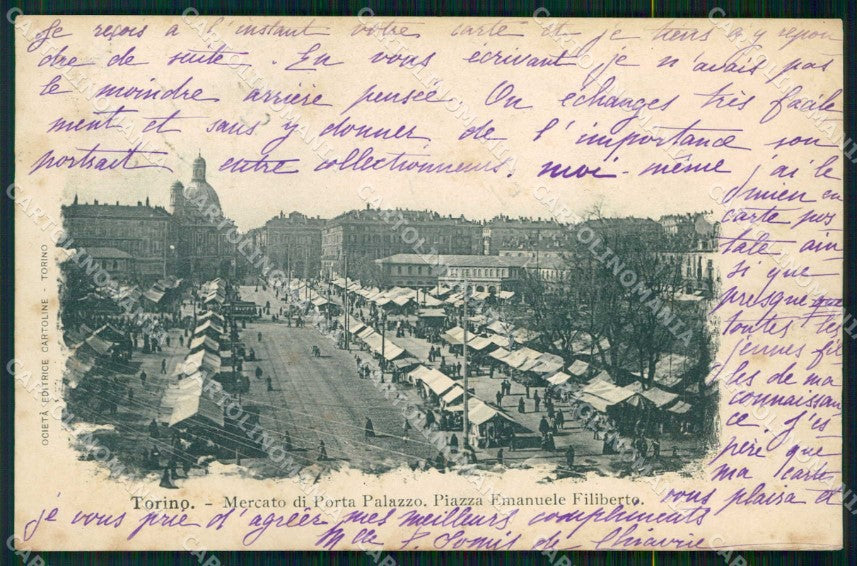 Je reçois à l'instant votre carte et je tiens à y répon
dre de suite. En vous écrivant je n'avais pas
le moindre arrière pensée. On échanges très facile
ment et sans y donner de l'importance son
portrait entre collectionneurs. moi-même j'ai le
mien en
carte pos
tale ain
si que
presque que
toutes les
jeunes fil
les de ma
connaissan
ce. J'es
père que
ma carte
vous plaira et
je vous prie d'agréer mes meilleurs compliments
Mlle de
SOCIETÀ EDITRICE CARTOLINE - TORINO
Torino. - Mercato di Porta Palazzo. Piazza Emanuele Filiberto.
CARTOLINOMANIA